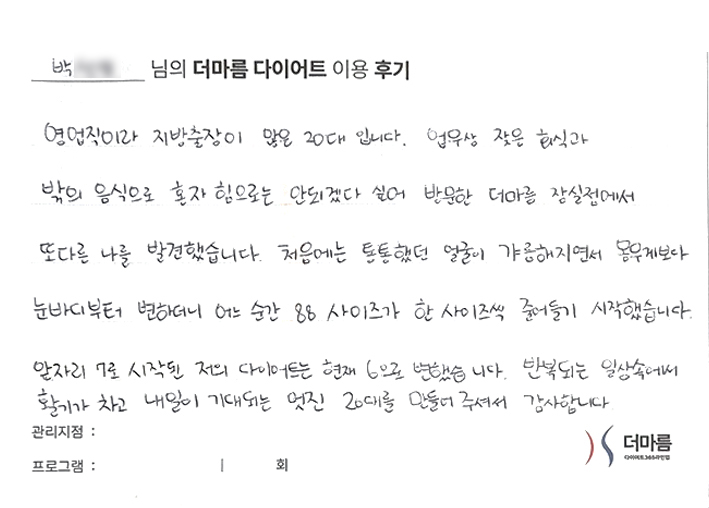 박 님의 더마름 다이어트 이용 후기
영업직이라 지방출장이 많은 20대 입니다. 업무상 잦은 회식과
밖의 음식으로 혼자 힘으로는 안되겠다 싶어 방문한 더마름 잠실점에서
또다른 나를 발견했습니다. 처음에는 통통했던 얼굴이 갸름해지면서 몸무게보다
눈바디부터 변하더니 어느 순간 88 사이즈가 한 사이즈씩 줄어들기 시작했습니다.
앞자리 7로 시작된 저의 다이어트는 현재 6으로 변했습니다. 반복되는 일상속에서
활기가 차고 내일이 기대되는 멋진 20대를 만들어 주셔서 감사합니다
관리지점 :
프로그램 : | 회
더마름
다이어트365라인업